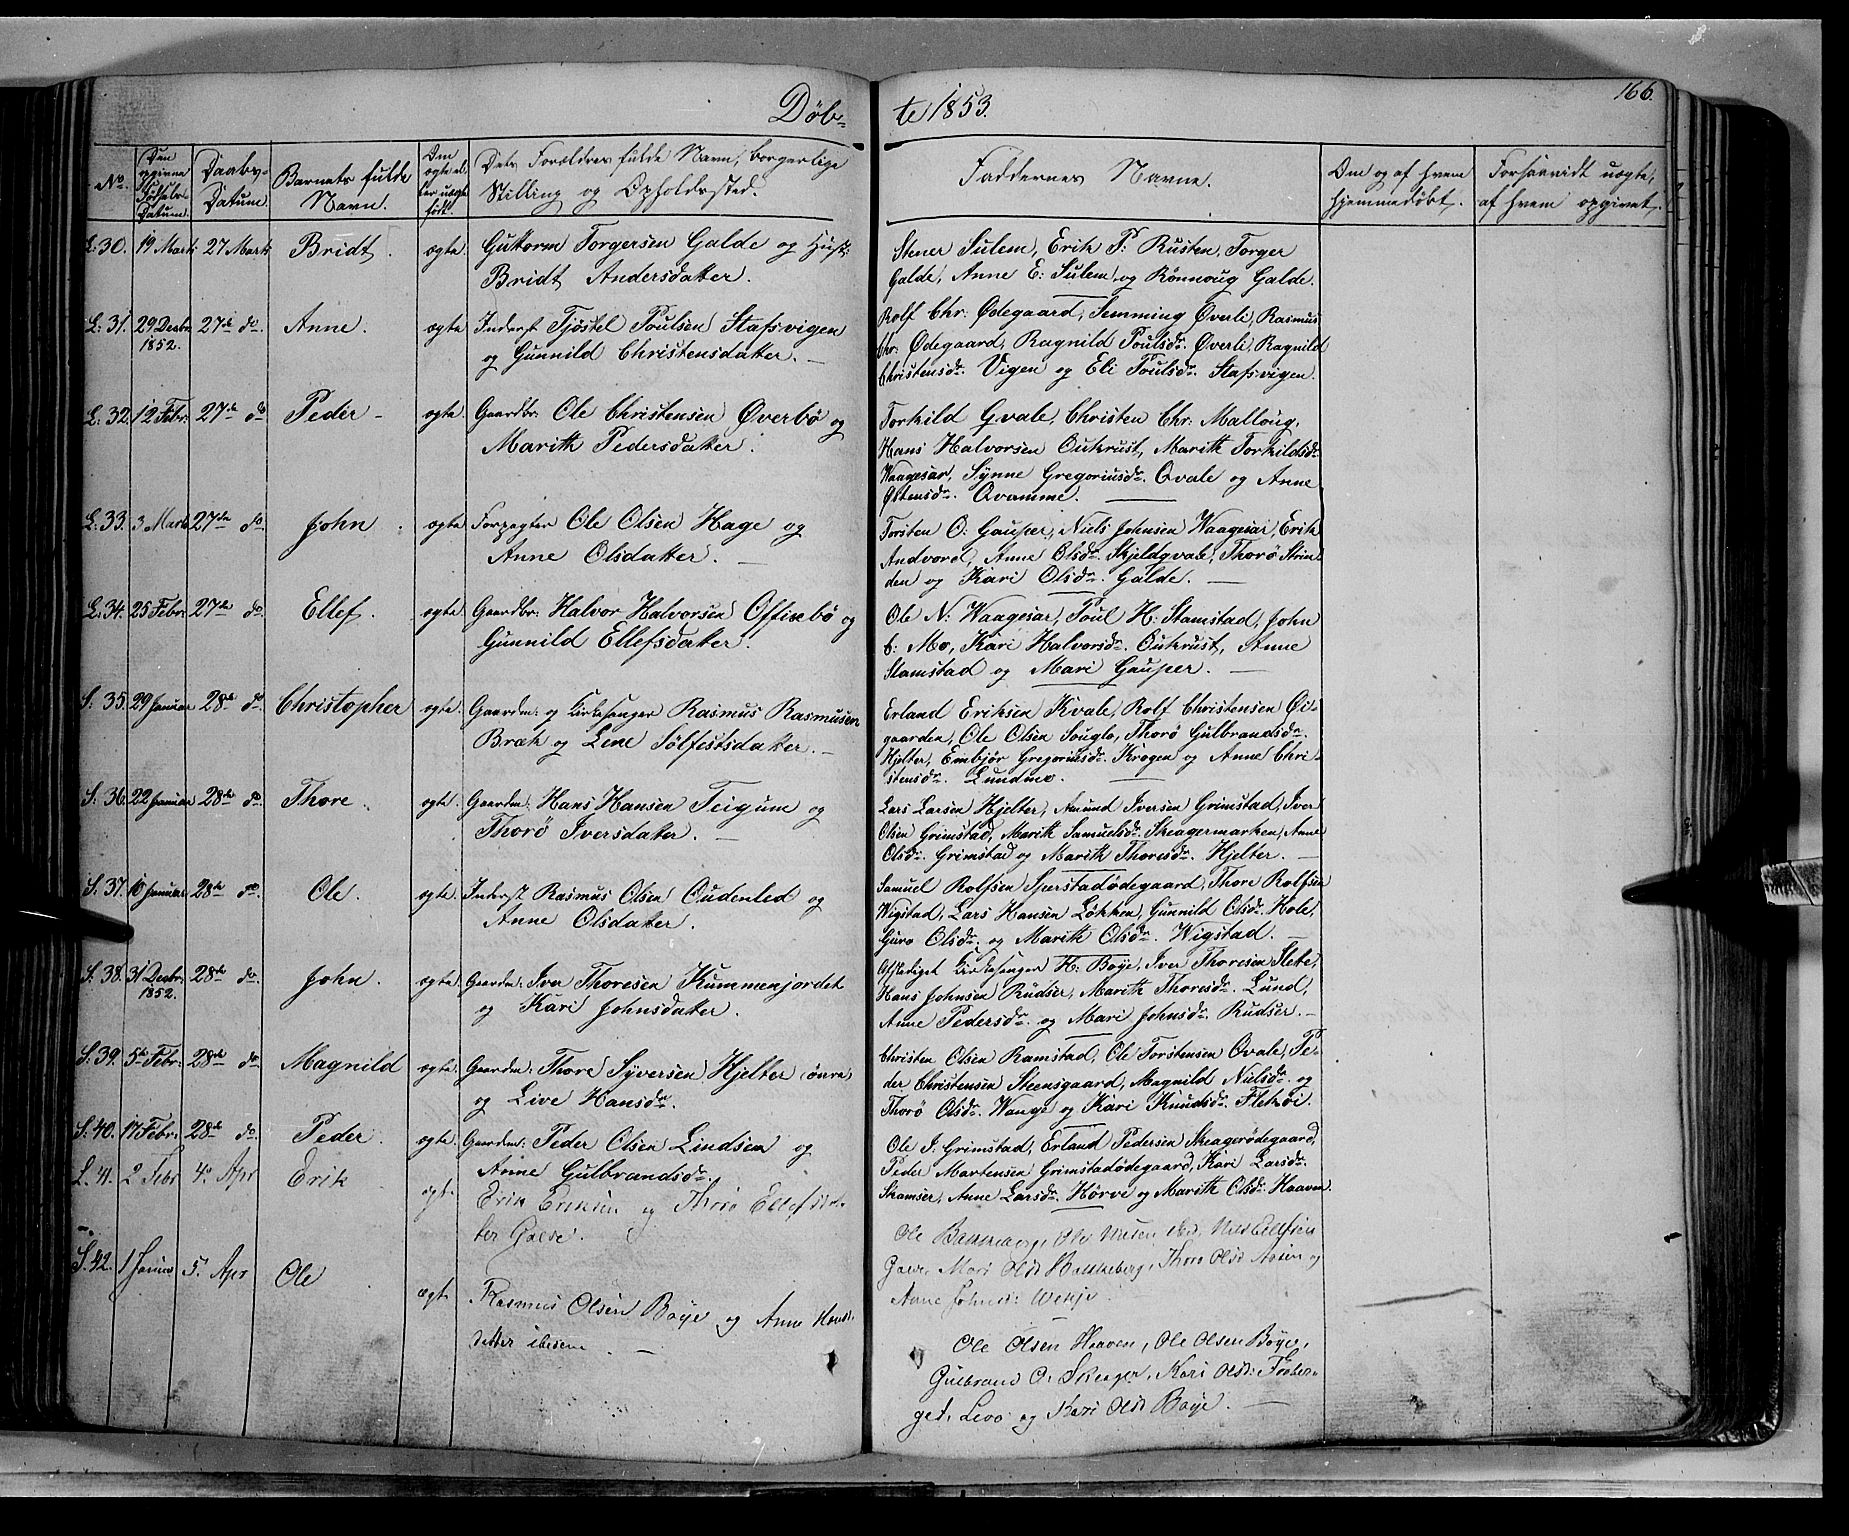 Döb-
te 1853.
166.
No.
Den opgivne Födsels-Datum.
Daabs-Datum.
Barnets fulde Navn.
Om ægte el- ler uægte födt.
Dets Forældres fulde Navn, borgerlige Stilling og Opholdssted.
Faddernes Navne.
Om og af hvem hjemmedöbt.
Forsaavidt uægte, af hvem opgivet.
L: 30. 19 Marts 27 Marts Bridt. ægte. Guttorm Torgersen Galde og Hust:
Bridt Andersdatter.
Stener Sulem, Erik P: Rusten, Torger
Galde, Anne E: Sulem, og Rönnoug Galde.
L: 31. 29 Decbr 1852. 27de do. Anne. ægte Inderst Tjöstel Poulsen Stafsvigen
og Gunnild Christensdatter. —
Rolf Chr: Ödegaard, Semming Överli, Rasmus
Chr: Ödegaard, Ragnild Poulsdr. Överli, Ragnild
Christensdr. Vigen og Eli Poulsdr. Stafsvigen.
L: 32. 12 Febr: 27de do Peder - ægte. Gaardbr. Ole Christensen Överbö og
Marith Pedersdatter.
Torkild Qvale, Christen Chr: Malloug,
Hans Halvorsen Outrust, Marith Torkildsdr
Waagesar, Synne Gregoriusdr. Qvale og Anne
Östensdr. Qvamme.
L: 33. 3 Marts 27de do John. ægte Forpagter Ole Olsen Hage og
Anne Olsdatter. —
Torsten O: Gauper, Niels Johnsen Waagesar, Erik
Andvord, Anne Olsdr. Skjeldqvale, Thorö Strin-
den og Kari Olsdr. Galde. —
L: 34. 25 Febr: 27de do. Ellef. ægte. Gaardbr: Halvor Halvorsen Offixebö og
Gunnild Ellefsdatter.
Ole N: Waagesar, Poul H: Stamstad, John
Mo, Kari Halvorsdr. Outrust, Anne
Stamstad og Mari Gauper. —
S: 35. 29 Januar 28de do. Christopher ægte. Gaardm: og Kirkesanger Rasmus Rasmusen
Bræk og Lene Sölfestsdatter. —
Erland Eriksen Kvale, Rolf Christensen Öi-
gaarden, Ole Olsen Sougle, Thorö Gulbrandsdr.
Hjelter, Embjör Gregoriusdr. Krogen og Anne Chri-
stensdr. Lundmo.
S: 36. 22 Januar 28de do. Thore. ægte. Gaardm: Hans Hansen Teigum og
Thorö Iversdatter. —
Lars Larsen Hjelter, Amund Iversen Grimstad, Iver
Olsen Grimstad, Marith Samuelsdr. Skeagermarken, Anne
Olsdr. Grimstad og Marith Thoresdr. Hjelter. —
S: 37. 10 Januar 28de do. Ole. ægte. Inderst Rasmus Olsen Oudenled og
Anne Olsdatter.
Samuel Rolfsen Sperstadödegaard, Thore Rolfsen
Wigstad, Lars Hansen Lökken, Gunnild Olsdr. Hole,
Guro Olsdr. og Marith Olsdr. Wigstad.
S: 38. 31 Decbr. 1852. 28de do. John. ægte. Gaardm: Iver Thoresen Kummenjordet
og Kari Johnsdatter.
Afskediget Kirkesanger H: Böye, Iver Thoresen Slete,
Hans Johnsen Rudser, Marith Thoresdr. Lund,
Anne Pedersdr. og Mari Johnsdr. Rudser. —
S: 39. 5te Febr: 28de do. Magnild ægte. Gaardm: Thore Syversen Hjelter (övre)
og Live Hansdr.
Christen Olsen Ramstad, Ole Torstensen Qvale, Pe-
der Christensen Steensgaard, Magnild Nielsdr. og
Thorö Olsdr. Waage og Kari Knudsdr. Fleköi.
S: 40. 17 Febr: 28de do. Peder. ægte. Gaardm: Peder Olsen Lindsen og
Anne Gulbrandsdr.
Ole I: Grimstad, Erland Pedersen Skeagerödegaard,
Peder Mortensen Grimstadödegaard, Kari Larsdr.
Skamser, Anne Larsdr. Hörve og Marith Olsdr. Haaven.
L. 41. 2 Febr 4. Apr Erik ægt. Erik Eriksen og Thorö Ellefsdat-
ter Galde.
Ole Bakkeberg, Ole
Mari Olsd Bakkeberg, Thorö Olsd og
Anne Johnsd:
S. 42. 1 Janua 5. Apr Ole ægt. Rasmus Olsen Böye og Anne Hansd:
datter ibidem. —
Ole Olsen Haaven, Ole Olsen Böye,
Gulbrand O. Skeager, Kari Olsd:
Levo og Kari Olsd Böye. —